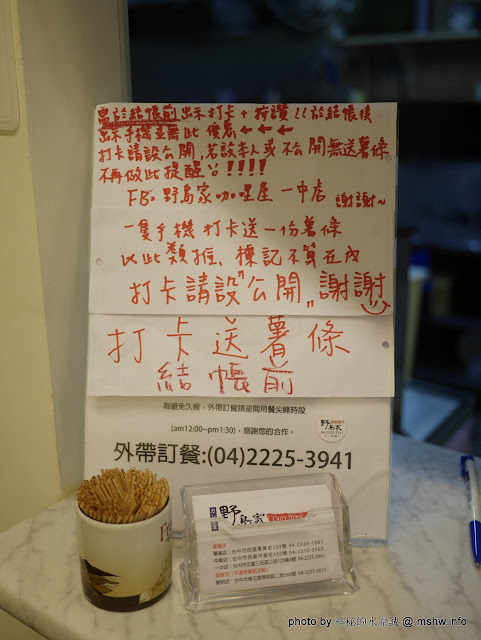 需於結帳前出示打卡+按讚!!於結帳後
出示手機並無此優惠←←←
打卡請設公開,若設本人或不公開無送薯條
不再做此提醒ㄡ!!!!
FB:野島家咖哩屋 一中店 謝謝~
一隻手機打卡送一份薯條
以此類推,標記不算在內
打卡請設"公開"謝謝
打卡送薯條
結帳前
為避免久候,外帶訂餐請避開用餐尖峰時段
(am12:00~pm1:30),感謝您的合作。
外帶訂餐:(04)2225-3941
野島家
Curry House
photo by 神秘的水原誠 @ mshw.info